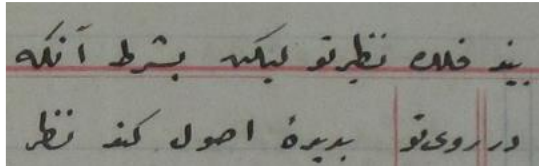 بیند فلک نظیر تو لیکن بشرط آنکه
در روی تو بدیدهٔ احول کند نظر